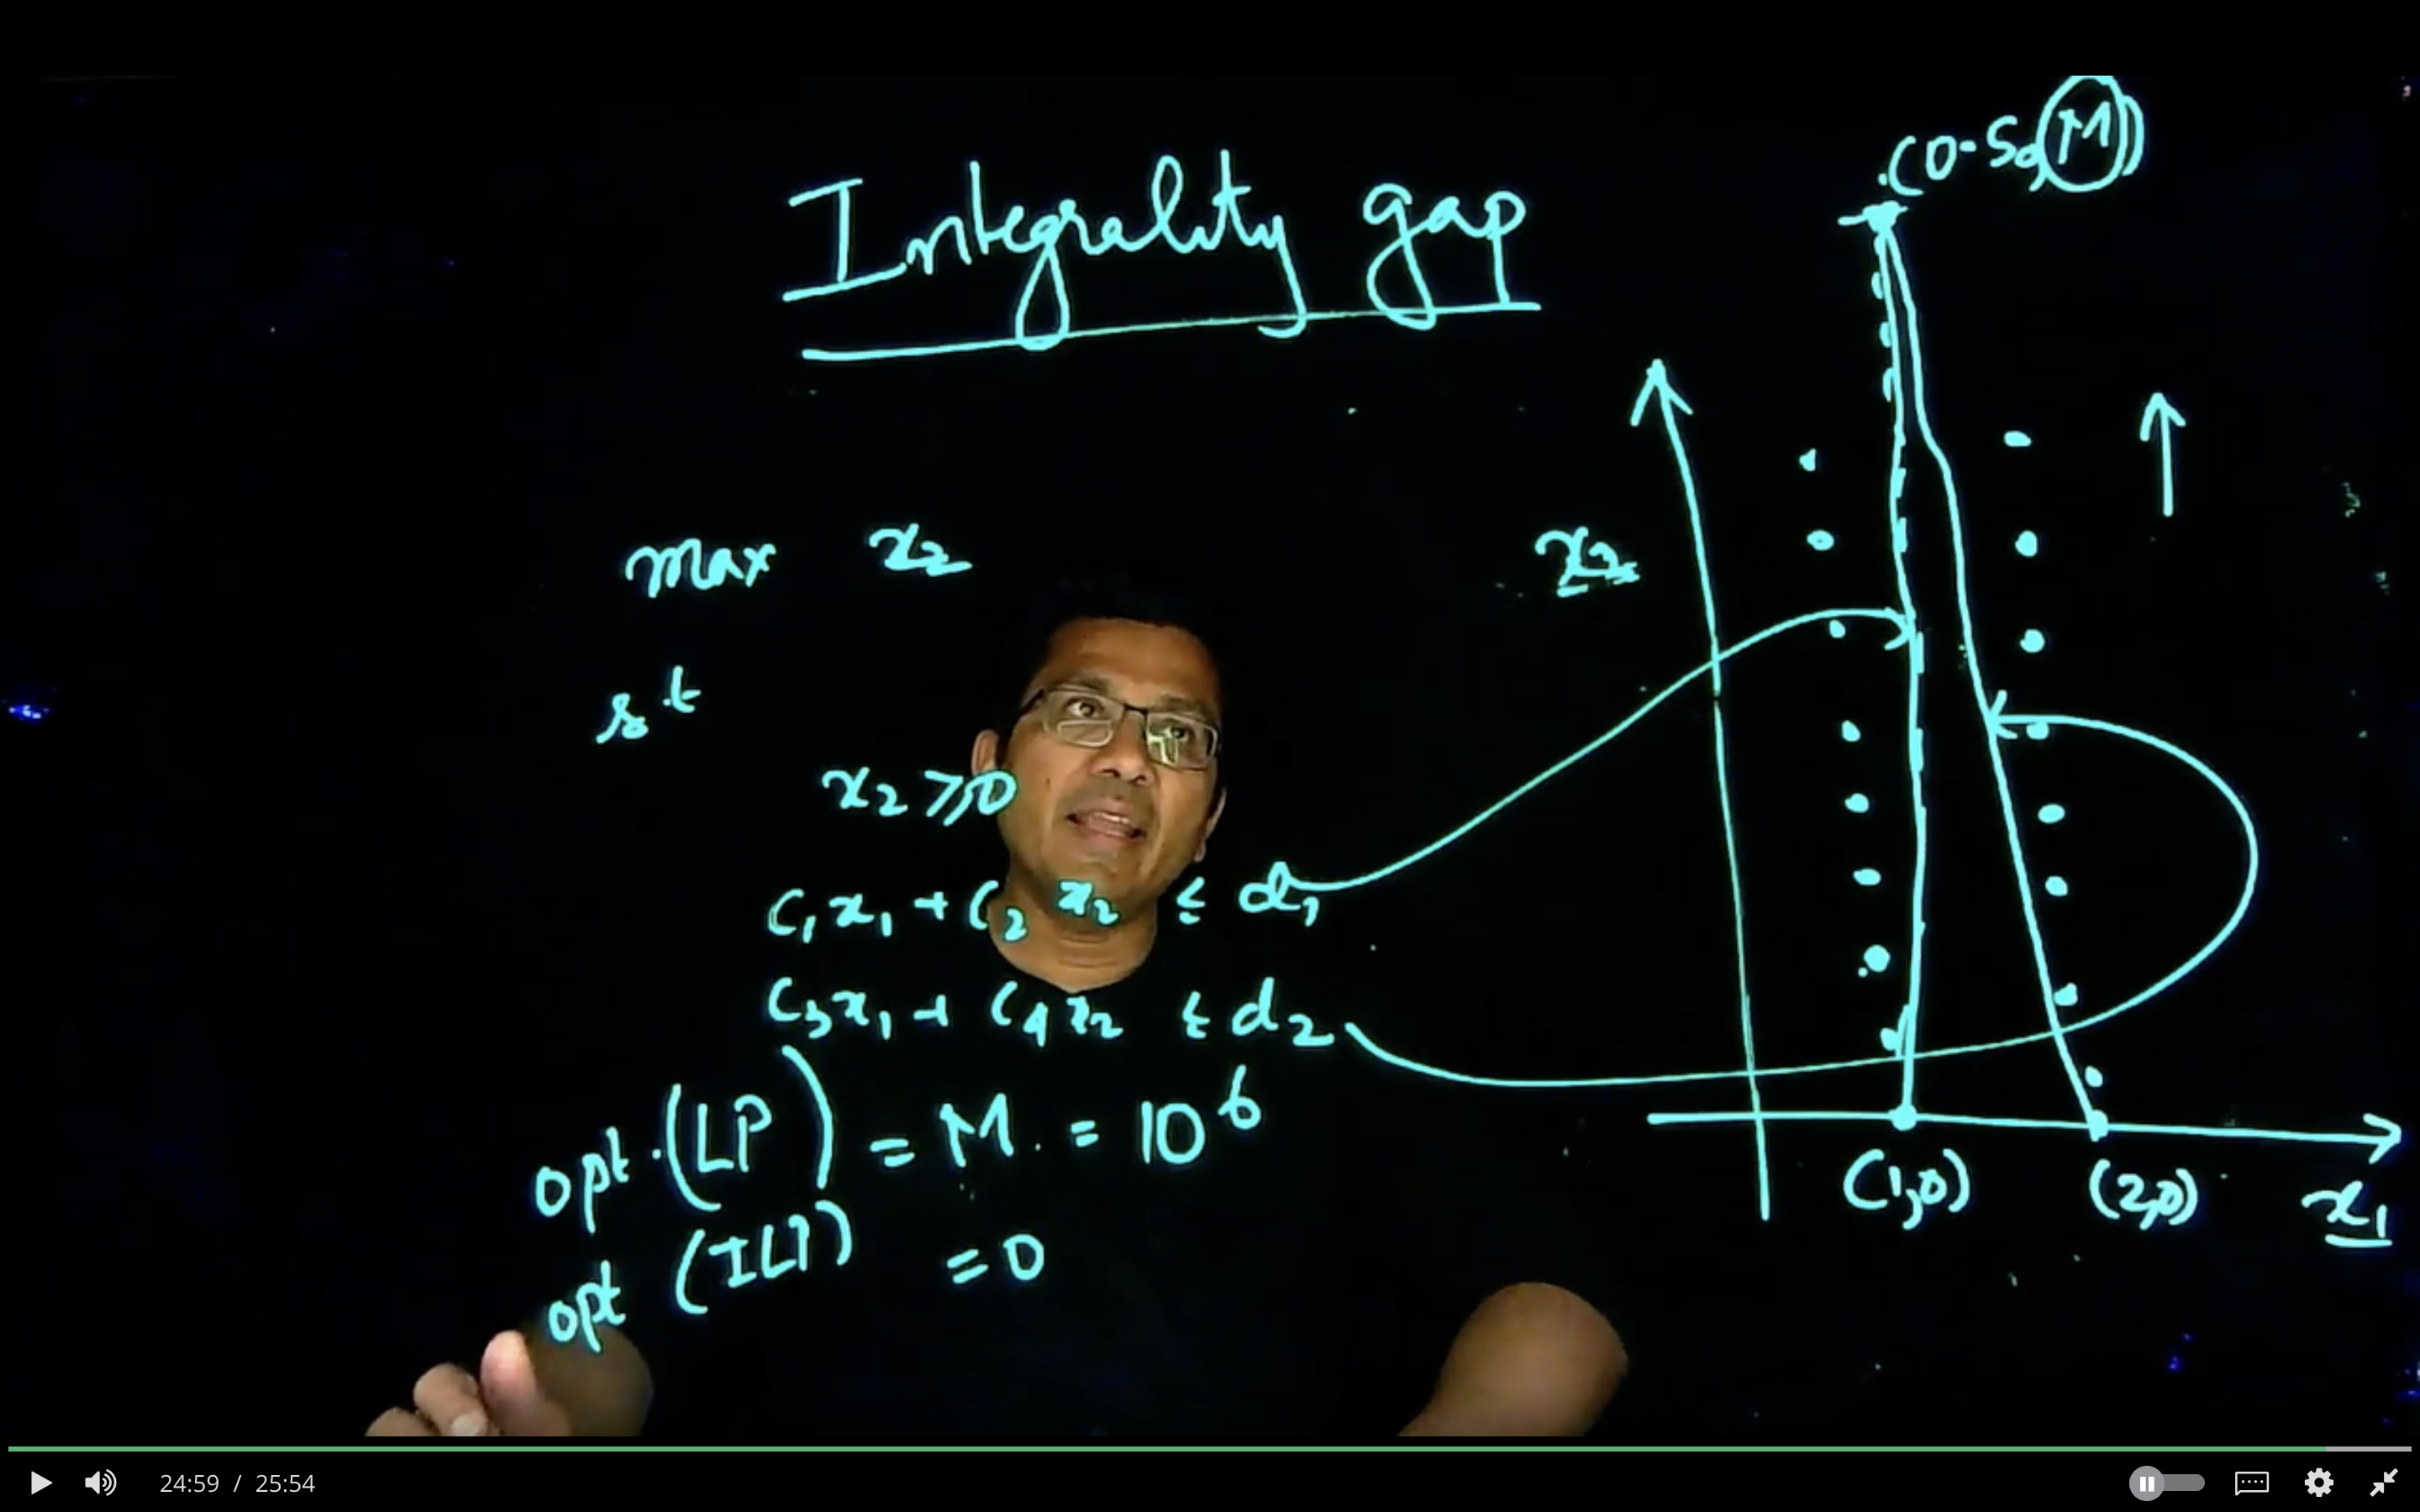 Integrality gap
(0.5, M))
max x₂
st
x₂ ≥ 0
c₁x₁ + c₂ x₂ ≤ d₁
c₃x₁ + c₄x₂ ≤ d₂
opt (LP) = M = 10⁶
opt (ILP) = 0
x₂
(1,0)
(2,0)
x₁
24:59 / 25:54